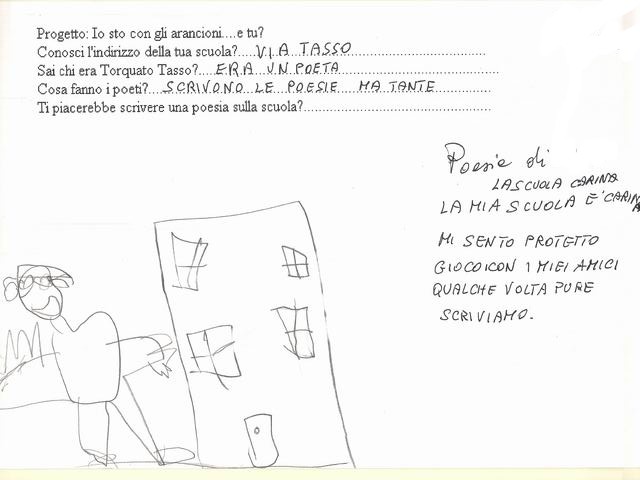 Progetto: Io sto con gli arancioni....e tu?
Conosci l'indirizzo della tua scuola?....VIA TASSO..............................
Sai chi era Torquato Tasso?....ERA UN POETA..............................
Cosa fanno i poeti?....SCRIVONO LE POESIE MA TANTE..............
Ti piacerebbe scrivere una poesia sulla scuola?..............................................
Poesie di
LA SCUOLA CARINA
LA MIA SCUOLA E' CARINA
MI SENTO PROTETTO
GIOCO CON I MIEI AMICI
QUALCHE VOLTA PURE
SCRIVIAMO.